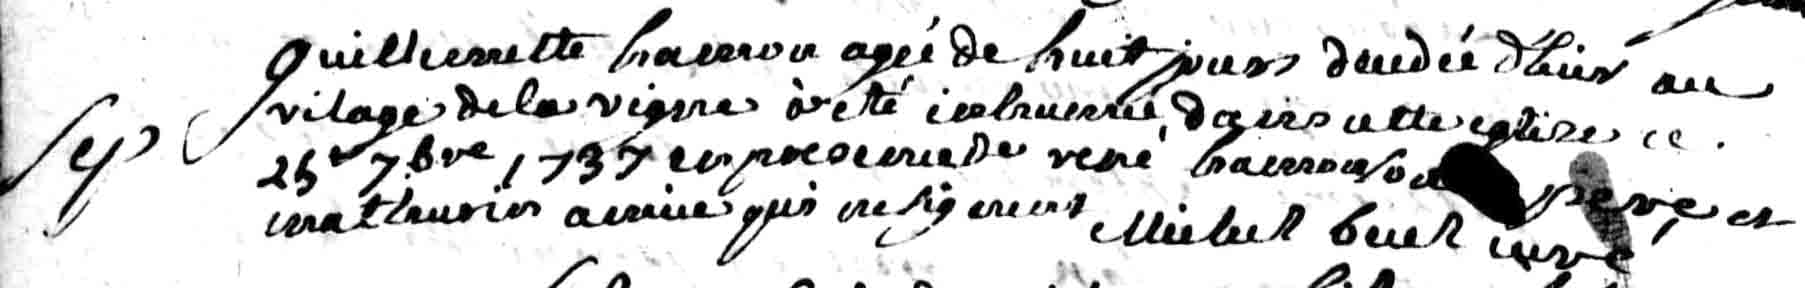 Guillemette hamon agéé de huit jours dcedéé d'hier au
Sep vilage de la vigne à été inhumeé dans cette eglise ce
25e 7bre 1737 en presence de rené hamon son pere et
mathurin amice qui ne signent Michel buel curé